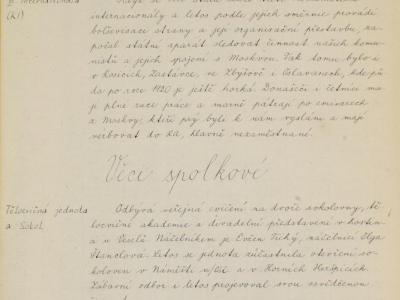 internacionály a letos podle jejich směrnic provádí
(KI)
bolševisaci strany a její organisační přestavbu, za-
počal státní aparát sledovat činnost našich komu-
nistů a jejich spojení s Moskvou. Tak tomu bylo i
v Kosicích, Zastávce, ve Zbýšově i Oslavanech, kde pů-
da po roce 1920 je ještě horká. Donašeči i četníci ma-
jí plné ruce práce a marně pátrají po emisarech
z Moskvy, kteří prý byli k nám vysláni a mají
verbovat do RA, hlavně nezaměstnané.
Věci spolkové
Tělocvičná jednota
a Sokol
Odbývá veřejná cvičení na dvoře sokolovny, tě-
locvičné akademie a divadelní představení v hostin-
ci u Veselů. Náčelníkem je Evžen Tichý, náčelnicí Olga
Stanclová. Letos se jednota zúčastnila otevření so-
koloven v Náměšti n/Osl. a v Horních Heršpicích.
Zábavní odbor i letos projevoval svou osvědčenou